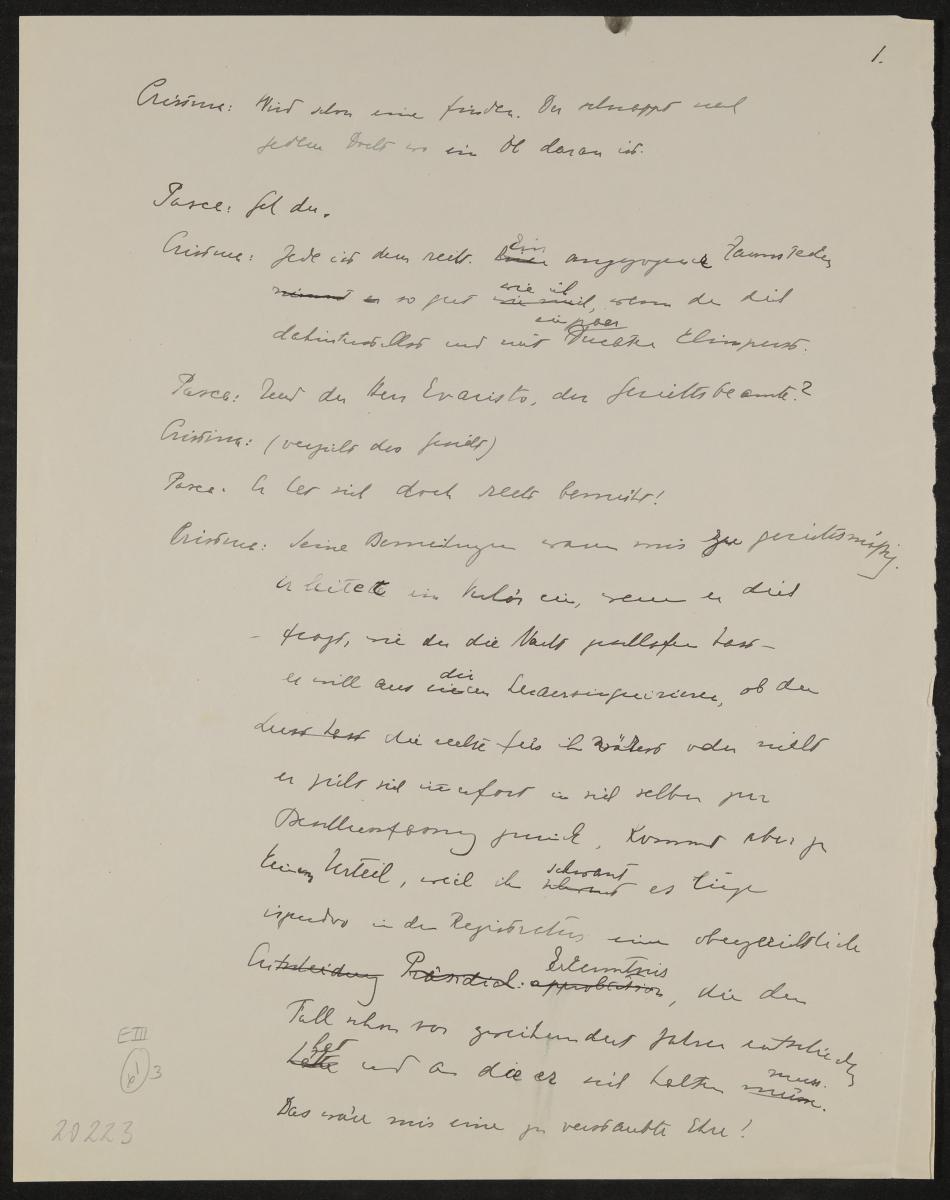 1.
Cristina: Wird schon eine finden. Der schnappt nach
jedem Docht wo ein Öl daran ist.
Pasca: Geh du.
Cristina: Jede ist dem recht. Ein angezogener Zaunstecken
so gut wie ich, wenn du dich
dahinterstellst und mit ein paar Dukaten klimperst.
Pasca: Und der Herr Evaristo, der Gerichtsbeamte?
Cristina: (verzieht das Gesicht)
Pasca: Er hat sich doch recht bemüht!
Cristina: Seine Bemühungen waren mir zu gerichtsmässig.
er leitet ein Verhör ein, wenn er dich
fragt, wie du die Nacht geschlafen hast –
er will aus dir herausinquirieren, ob du
die rechte für ihn wärest oder nicht
er zieht sich immerfort in sich selber zur
Beschlussfassung zurück, kommt aber zu
keinem Urteil, weil ihm schwant es liege
irgendwo in der Registratur eine obergerichtliche
Erkenntnis, die den
Fall schon vor zweihundert Jahren entschieden
hat und an die er sich halten muss.
Das wär mir eine zu verstaubte Ehe!
E III
b¹ 3
20223